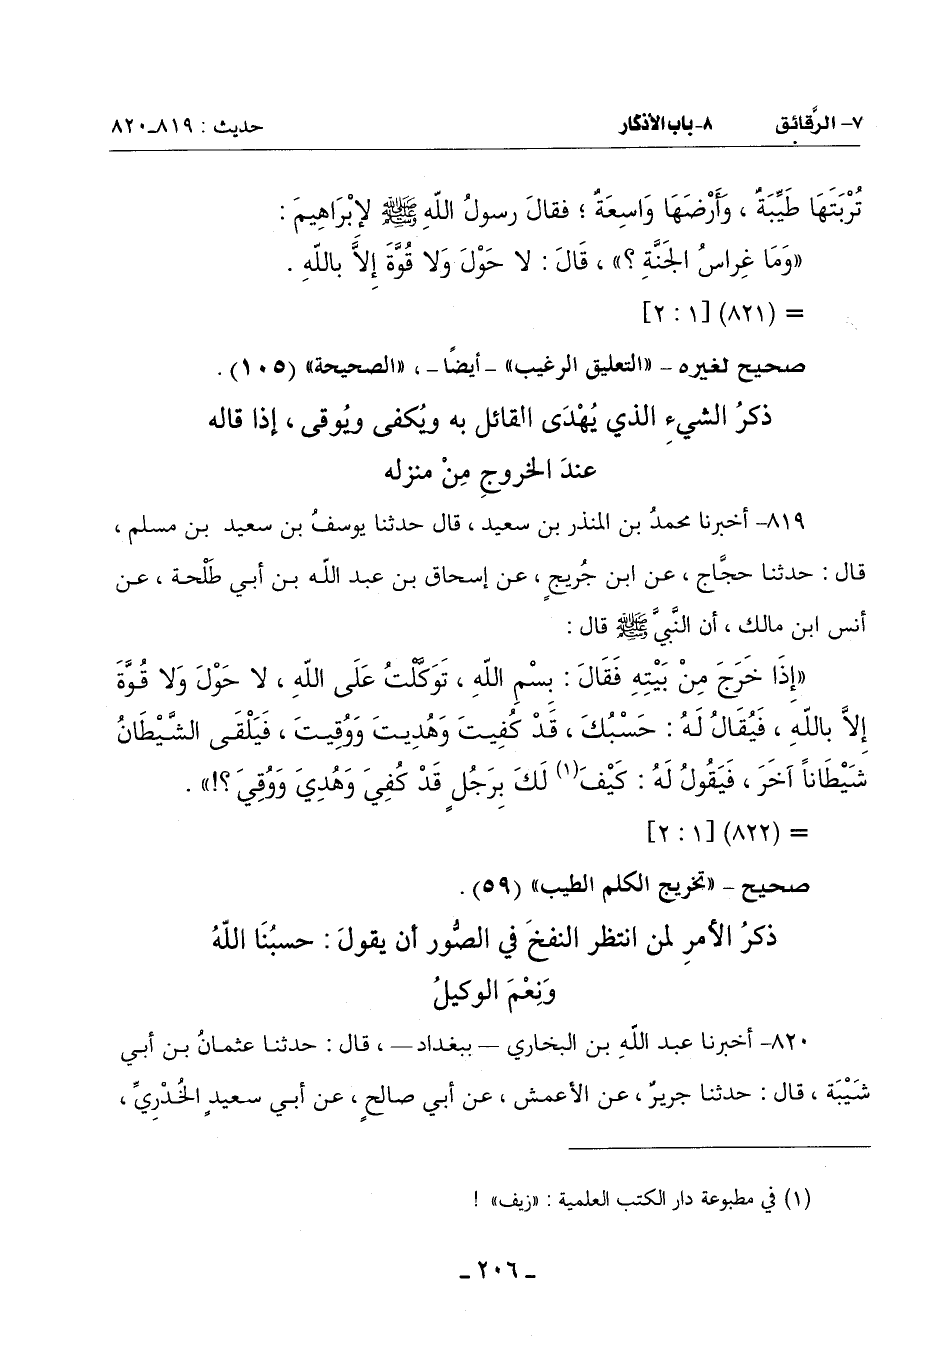 ٧- الرَّقائق ٨-باب الأذكار حديث : ٨١٩ـ٨٢٠
تُرْبَتَهَا طَيِّبَةٌ ، وَأَرْضَهَا وَاسِعَةٌ ؛ فقالَ رسولُ اللّهِ ﷺ لإبْرَاهِيمَ :
«وَمَا غِراسُ الجَنَّةِ ؟» ، قَالَ : لا حَوْلَ وَلا قُوَّةَ إِلاَّ باللّهِ .
= (٨٢١) [١ : ٢]
صحيح لغيره – «التعليق الرغيب» – أيضاً – ، «الصحيحة» (١٠٥) .
ذكرُ الشيءِ الذي يُهْدَى القائل به ويُكفى ويُوقى ، إذا قاله
عندَ الخروجِ مِنْ منزله
٨١٩- أخبرنا محمدُ بن المنذر بن سعيد ، قال حدثنا يوسفُ بن سعيد بن مسلم ،
قال : حدثنا حجَّاج ، عن ابن جُريجٍ ، عن إسحاق بن عبد اللّه بن أبي طَلْحة ، عن
أنس ابن مالك ، أن النَّبيَّ ﷺ قال :
«إِذَا خَرَجَ مِنْ بَيْتِهِ فَقَالَ : بِسْمِ اللّهِ ، تَوَكَّلْتُ عَلَى اللّهِ ، لا حَوْلَ وَلا قُوَّةَ
إِلاَّ باللّهِ ، فَيُقَالُ لَهُ : حَسْبُكَ ، قَدْ كُفِيتَ وَهُدِيتَ وَوُقِيتَ ، فَيَلْقَى الشَّيْطَانُ
شَيْطَاناً آخَرَ ، فَيَقُولُ لَهُ : كَيْفَ(١) لَكَ بِرَجُلٍ قَدْ كُفِيَ وَهُدِيَ وَوُقِيَ ؟!» .
= (٨٢٢) [١ : ٢]
صحيح – «تخريج الكلم الطيب» (٥٩) .
ذكرُ الأمرِ لمن انتظر النفخَ في الصُّور أن يقولَ : حسبُنَا اللّهُ
وَنِعْمَ الوكيلُ
٨٢٠- أخبرنا عبد اللّهِ بن البخاري — ببغداد — ، قال : حدثنا عثمانُ بن أبي
شَيْبَة ، قال : حدثنا جريرٌ ، عن الأعمش ، عن أبي صالحٍ ، عن أبي سعيدٍ الخُدْريِّ ،
(١) في مطبوعة دار الكتب العلمية : «زيف» !
ـ ٢٠٦ ـ